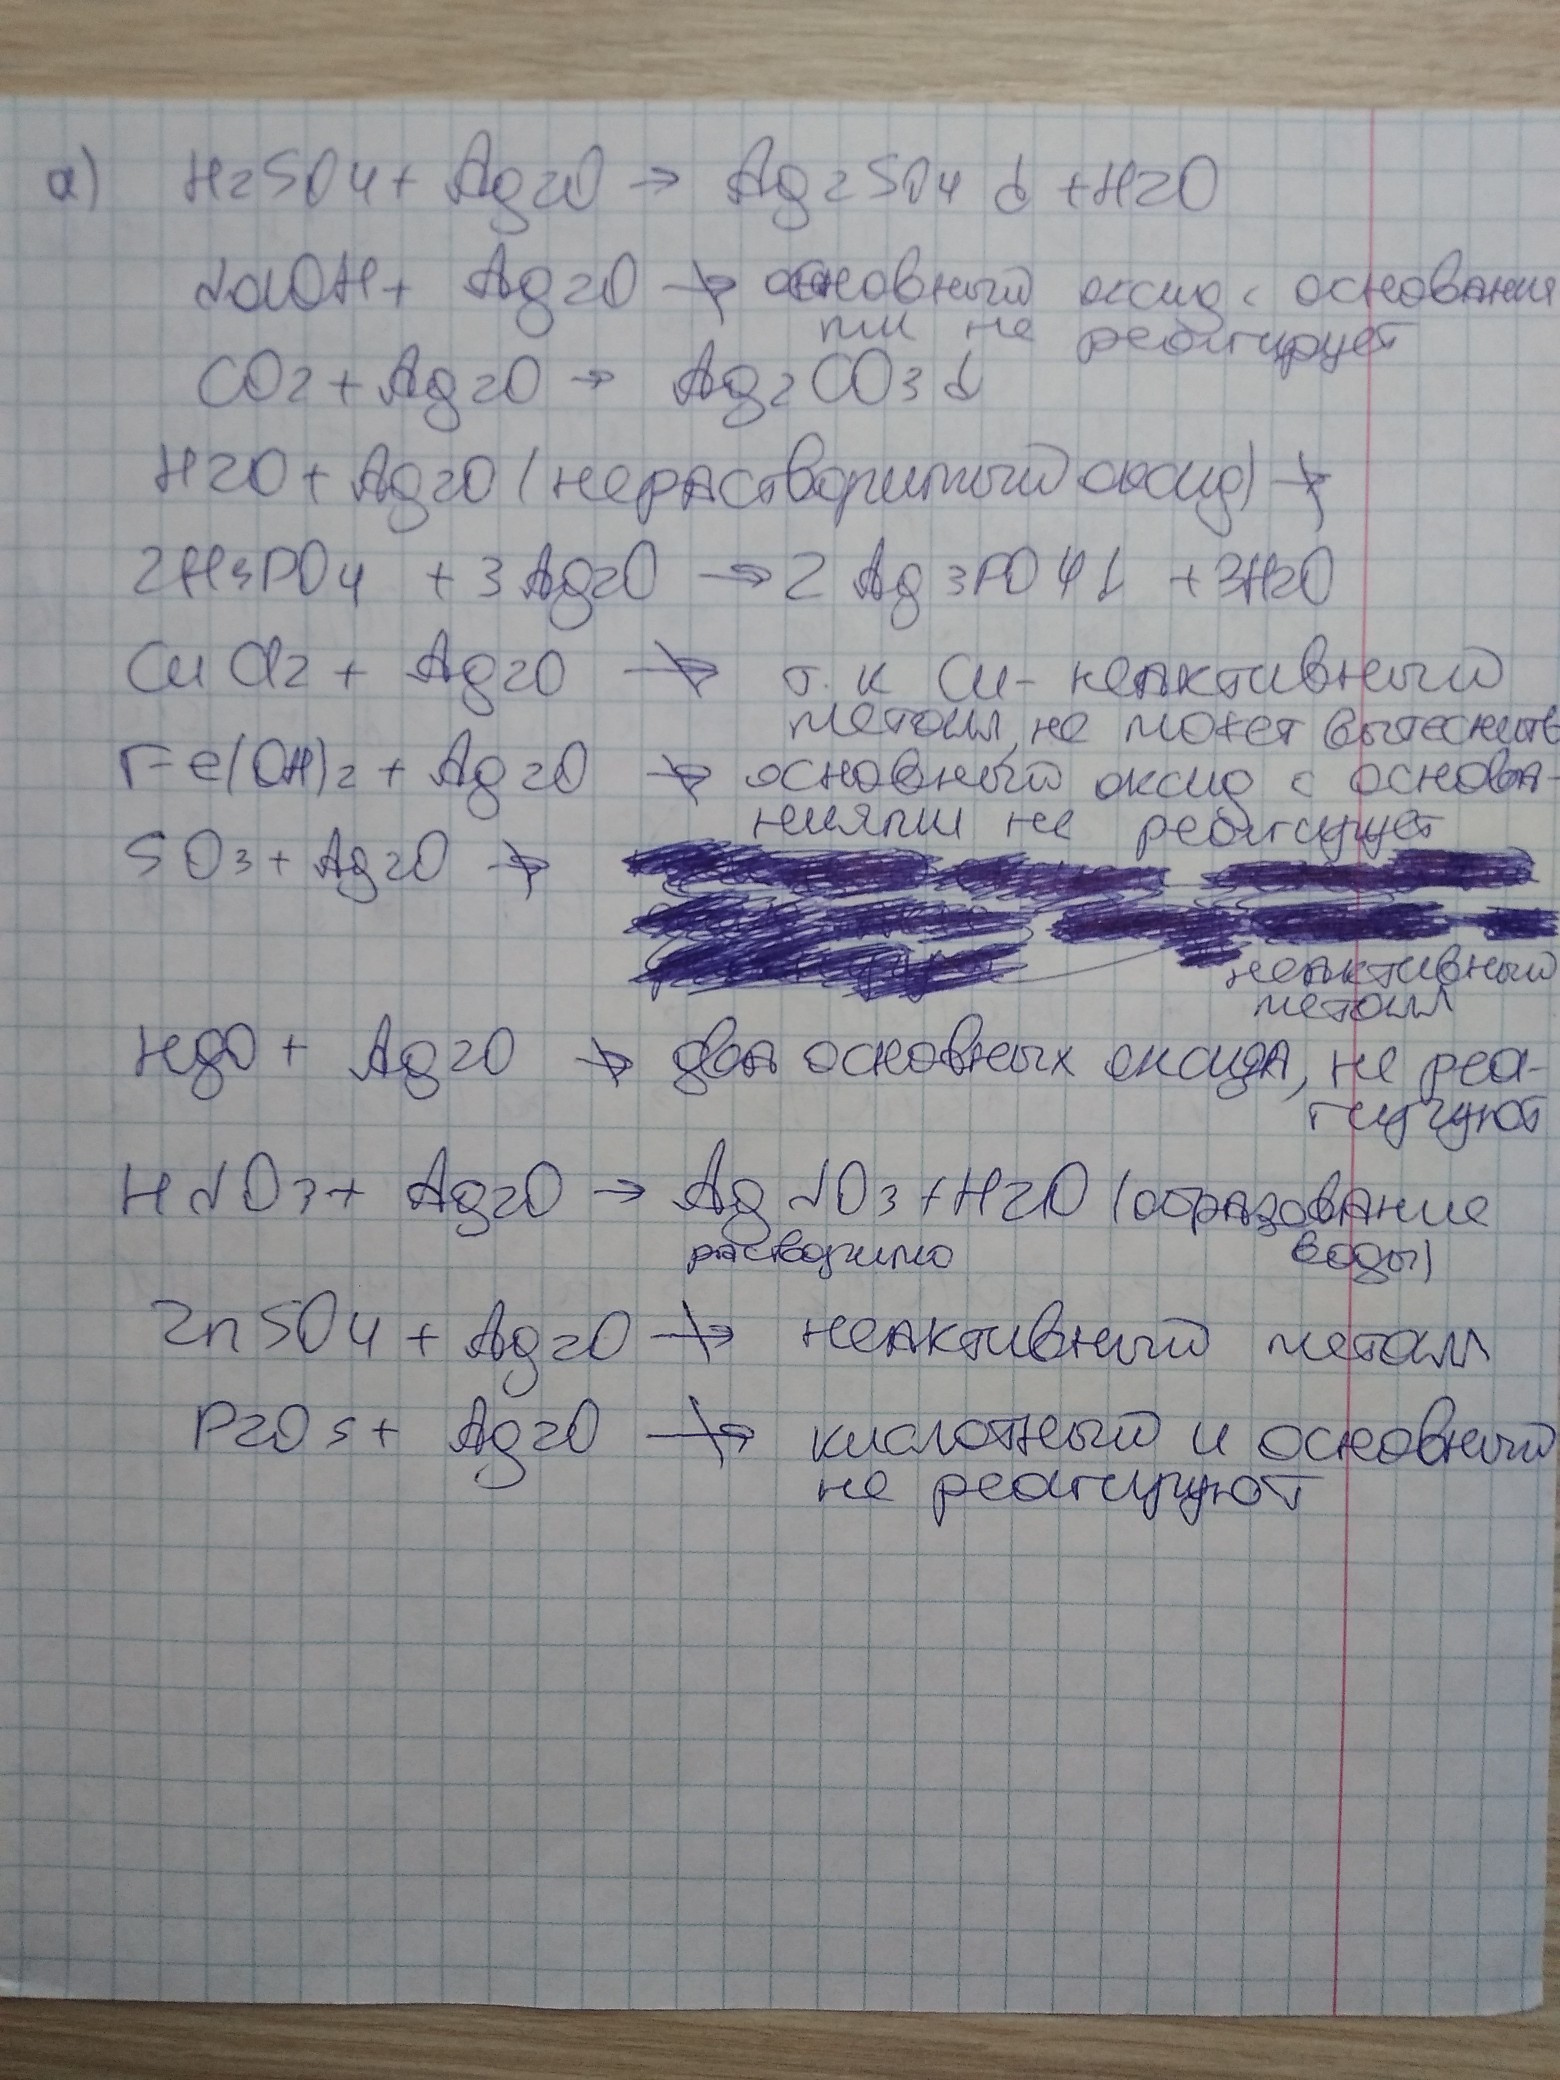 а) H2SO4 + Ag2O → Ag2SO4 ↓ + H2O
NaOH + Ag2O ↛ основный оксид с основания
ми не реагирует
CO2 + Ag2O → Ag2CO3 ↓
H2O + Ag2O (нерастворимый оксид) ↛
2H3PO4 + 3Ag2O → 2Ag3PO4↓ + 3H2O
CuCl2 + Ag2O ↛ т.к Cu - неактивный
металл, не может вытеснить
Fe(OH)2 + Ag2O ↛ основный оксид с основа-
ниями не реагирует
SO3 + Ag2O ↛
неактивный
металл
HgO + Ag2O ↛ два основных оксида, не реа-
гируют
HNO3 + Ag2O → AgNO3 + H2O (образование
растворимо воды)
ZnSO4 + Ag2O ↛ неактивный металл
P2O5 + Ag2O ↛ кислотный и основный
не реагируют